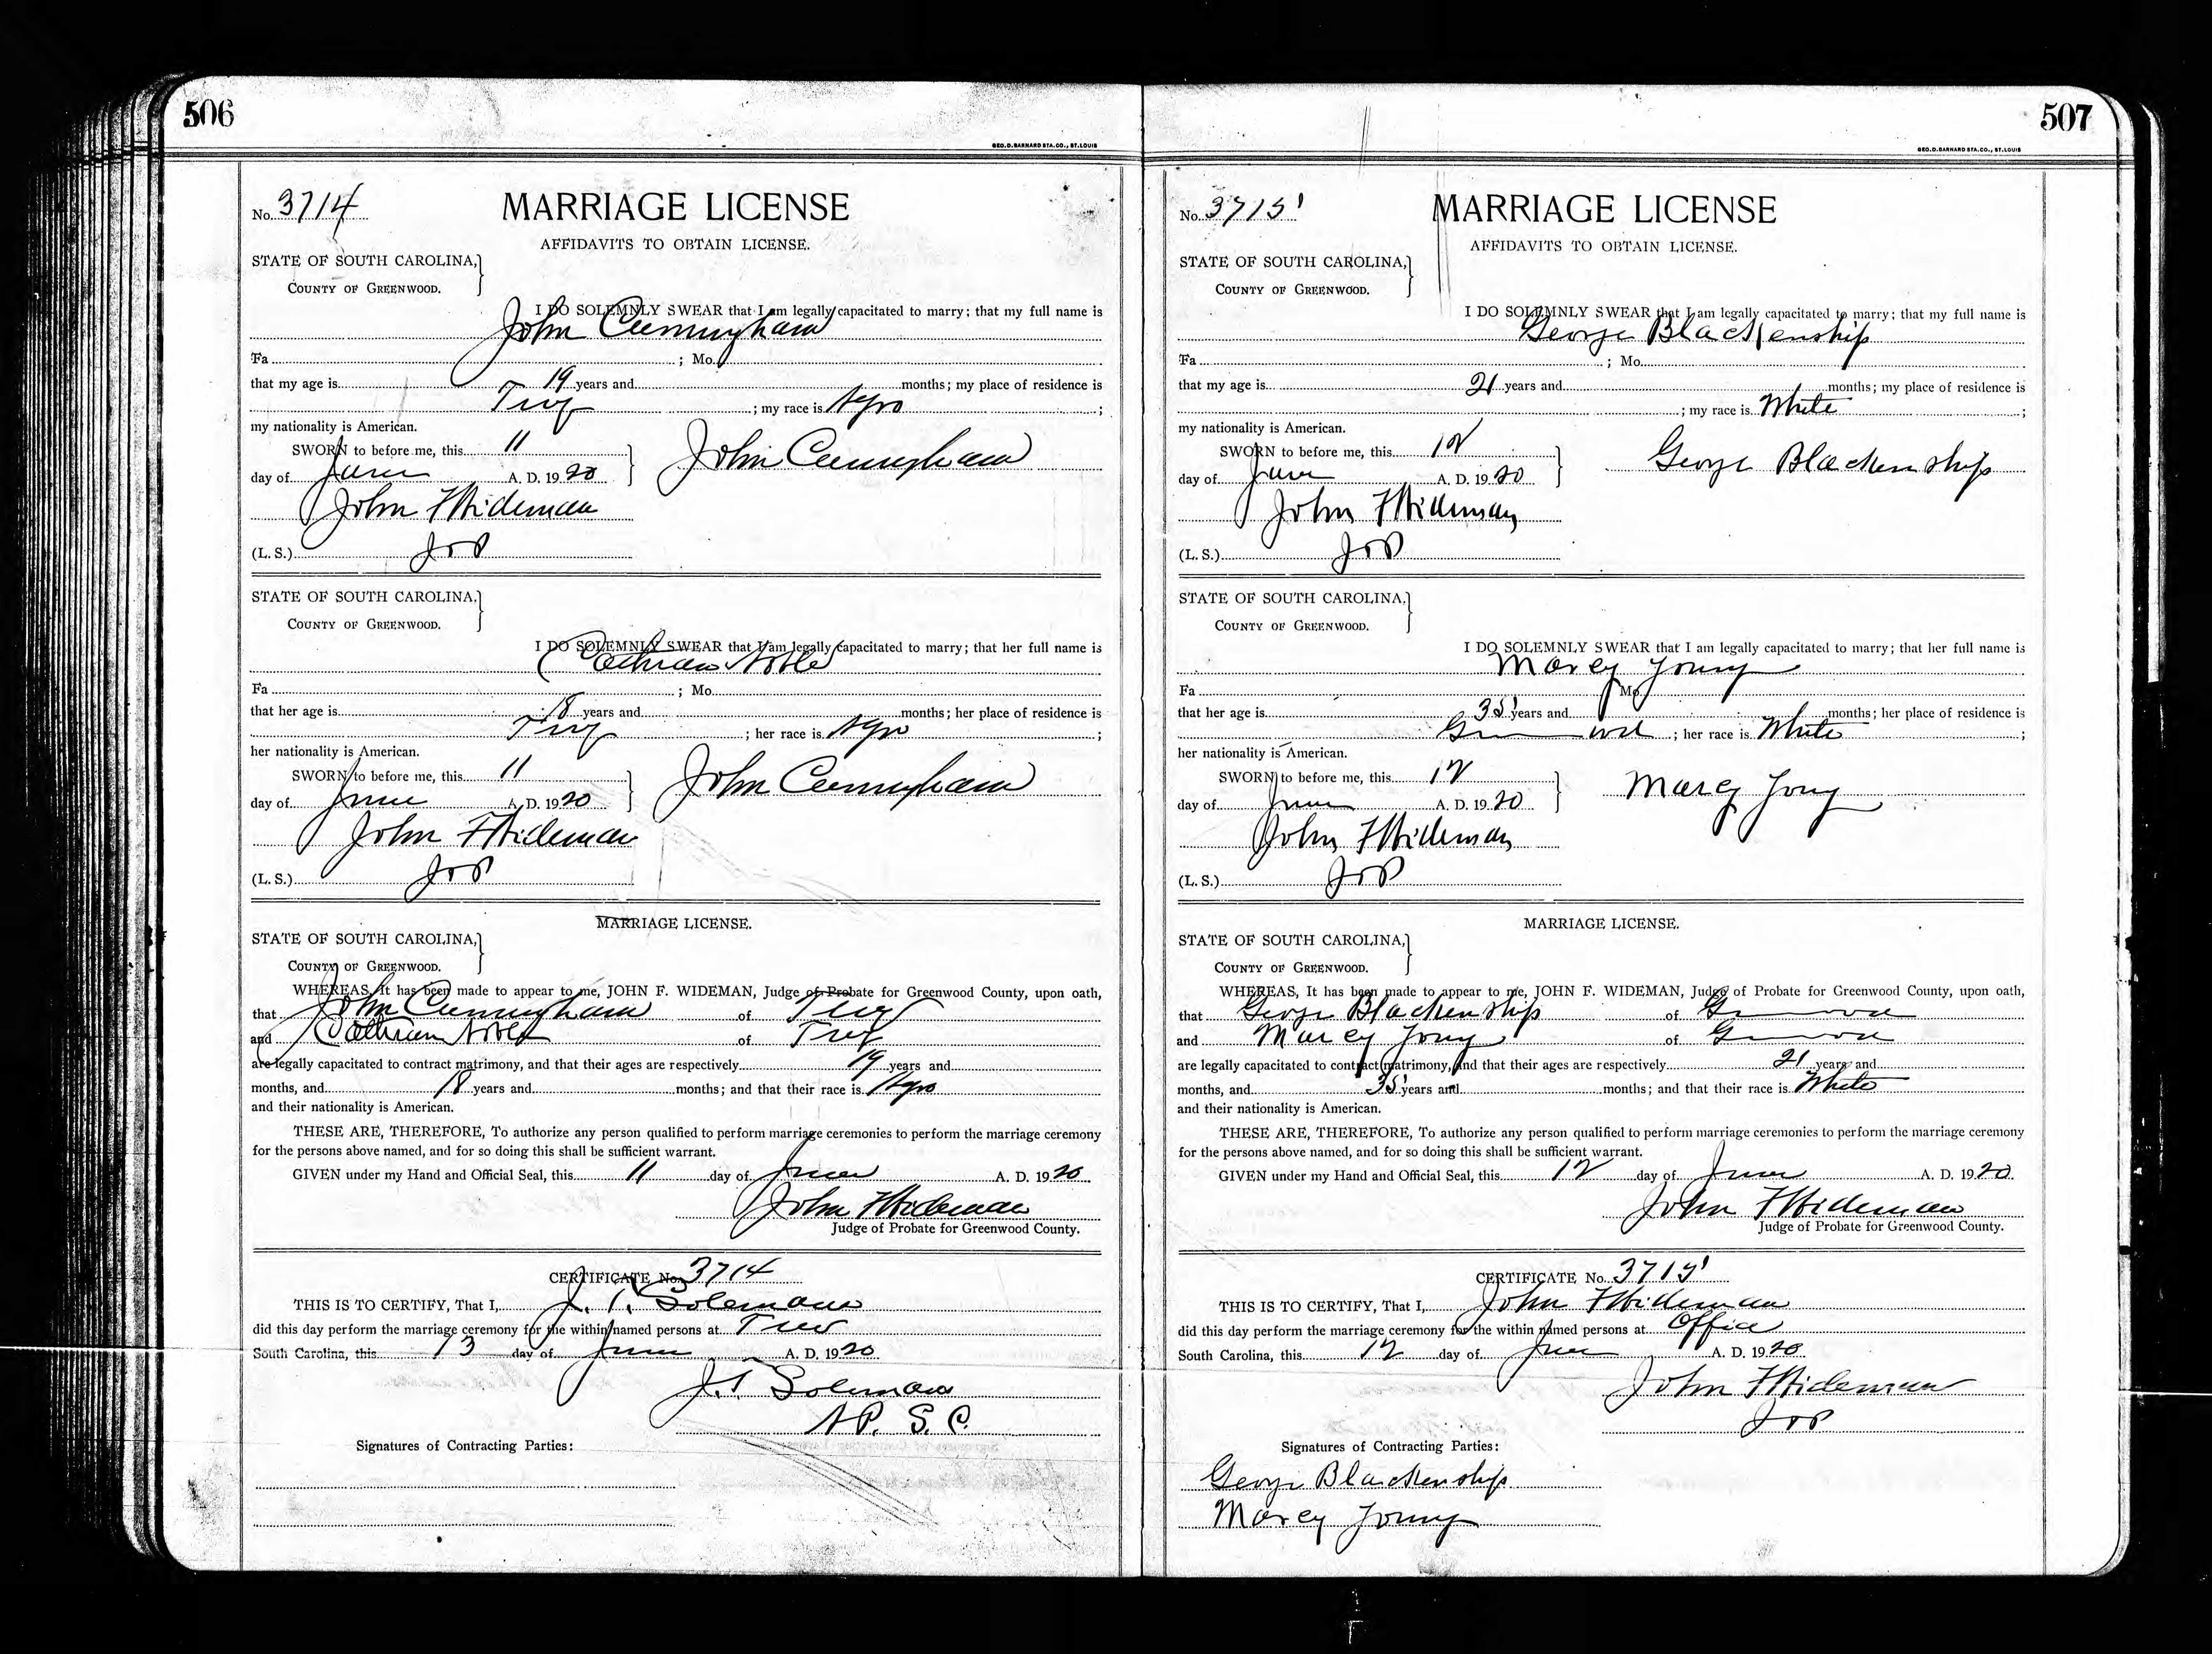 506
GEO. D. BARNARD STA. CO., ST. LOUIS
No. 3714
MARRIAGE LICENSE
AFFIDAVITS TO OBTAIN LICENSE.
STATE OF SOUTH CAROLINA,
COUNTY OF GREENWOOD.
I DO SOLEMNLY SWEAR that I am legally capacitated to marry; that my full name is
John Cunningham
Fa ; Mo.
that my age is 19 years and months; my place of residence is
Troy ; my race is Negro ;
my nationality is American.
SWORN to before me, this 11
day of June A. D. 1920
John Cunningham
John F Wideman
(L. S.) JoP
STATE OF SOUTH CAROLINA,
COUNTY OF GREENWOOD.
I DO SOLEMNLY SWEAR that I am legally capacitated to marry; that her full name is
Noble
Fa ; Mo.
that her age is 18 years and months; her place of residence is
Troy ; her race is Negro ;
her nationality is American.
SWORN to before me, this 11
day of June A. D. 1920
John Cunningham
John F Wideman
(L. S.) JoP
MARRIAGE LICENSE.
STATE OF SOUTH CAROLINA,
COUNTY OF GREENWOOD.
WHEREAS, It has been made to appear to me, JOHN F. WIDEMAN, Judge of Probate for Greenwood County, upon oath,
that John Cunningham of Troy
and Noble of Troy
are legally capacitated to contract matrimony, and that their ages are respectively 19 years and
months, and 18 years and months; and that their race is Negro
and their nationality is American.
THESE ARE, THEREFORE, To authorize any person qualified to perform marriage ceremonies to perform the marriage ceremony
for the persons above named, and for so doing this shall be sufficient warrant.
GIVEN under my Hand and Official Seal, this 11 day of June A. D. 1920
John F Wideman
Judge of Probate for Greenwood County.
CERTIFICATE No. 3714
THIS IS TO CERTIFY, That I, J. T. Coleman
did this day perform the marriage ceremony for the within named persons at Troy
South Carolina, this 13 day of June A. D. 1920
J. T. Coleman
N. P. S. C.
Signatures of Contracting Parties:
507
GEO. D. BARNARD STA. CO., ST. LOUIS
No. 3715
MARRIAGE LICENSE
AFFIDAVITS TO OBTAIN LICENSE.
STATE OF SOUTH CAROLINA,
COUNTY OF GREENWOOD.
I DO SOLEMNLY SWEAR that I am legally capacitated to marry; that my full name is
George Blackenship
Fa ; Mo.
that my age is 21 years and months; my place of residence is
; my race is White ;
my nationality is American.
SWORN to before me, this 12
day of June A. D. 1920
George Blackenship
John F Wideman
(L. S.) JoP
STATE OF SOUTH CAROLINA,
COUNTY OF GREENWOOD.
I DO SOLEMNLY SWEAR that I am legally capacitated to marry; that her full name is
Marey Young
Fa Mo.
that her age is 35 years and months; her place of residence is
Greenwood ; her race is White ;
her nationality is American.
SWORN to before me, this 12
day of June A. D. 1920
Marey Young
John F Wideman
(L. S.) JoP
MARRIAGE LICENSE.
STATE OF SOUTH CAROLINA,
COUNTY OF GREENWOOD.
WHEREAS, It has been made to appear to me, JOHN F. WIDEMAN, Judge of Probate for Greenwood County, upon oath,
that George Blackenship of Greenwood
and Marey Young of Greenwood
are legally capacitated to contract matrimony, and that their ages are respectively 21 years and
months, and 35 years and months; and that their race is White
and their nationality is American.
THESE ARE, THEREFORE, To authorize any person qualified to perform marriage ceremonies to perform the marriage ceremony
for the persons above named, and for so doing this shall be sufficient warrant.
GIVEN under my Hand and Official Seal, this 12 day of June A. D. 1920
John F Wideman
Judge of Probate for Greenwood County.
CERTIFICATE No. 3715
THIS IS TO CERTIFY, That I, John F Wideman
did this day perform the marriage ceremony for the within named persons at Office
South Carolina, this 12 day of June A. D. 1920
John F Wideman
JoP
Signatures of Contracting Parties:
George Blackenship
Marey Young